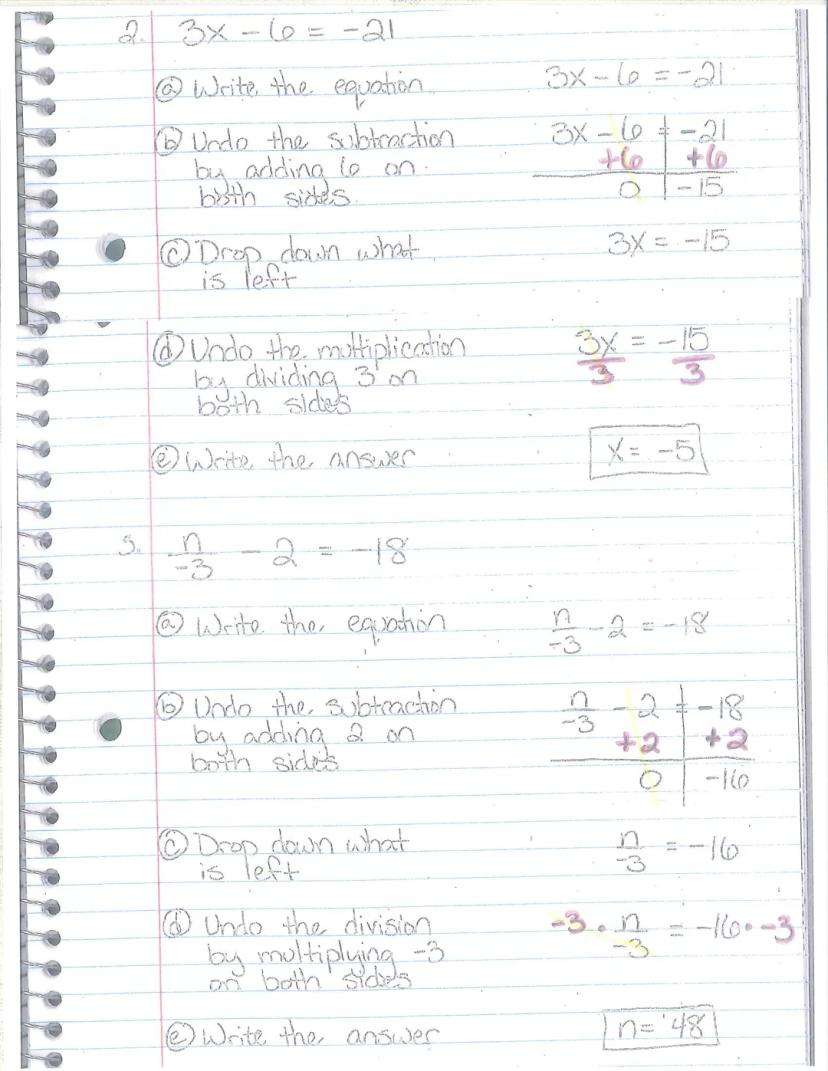 2. 3x - 6 = -21
ⓐ Write the equation 3x - 6 = -21
ⓑ Undo the subtraction 3x - 6 = -21
by adding 6 on +6 +6
both sides 0 -15
ⓒ Drop down what 3x = -15
is left
ⓓ Undo the multiplication 3x = -15
by dividing 3 on 3 3
both sides
ⓔ Write the answer x = -5
3. n/-3 - 2 = -18
ⓐ Write the equation n/-3 - 2 = -18
ⓑ Undo the subtraction n/-3 - 2 = -18
by adding 2 on +2 +2
both sides 0 -16
ⓒ Drop down what n/-3 = -16
is left
ⓓ Undo the division -3 · n/-3 = -16 · -3
by multiplying -3
on both sides
ⓔ Write the answer n = 48